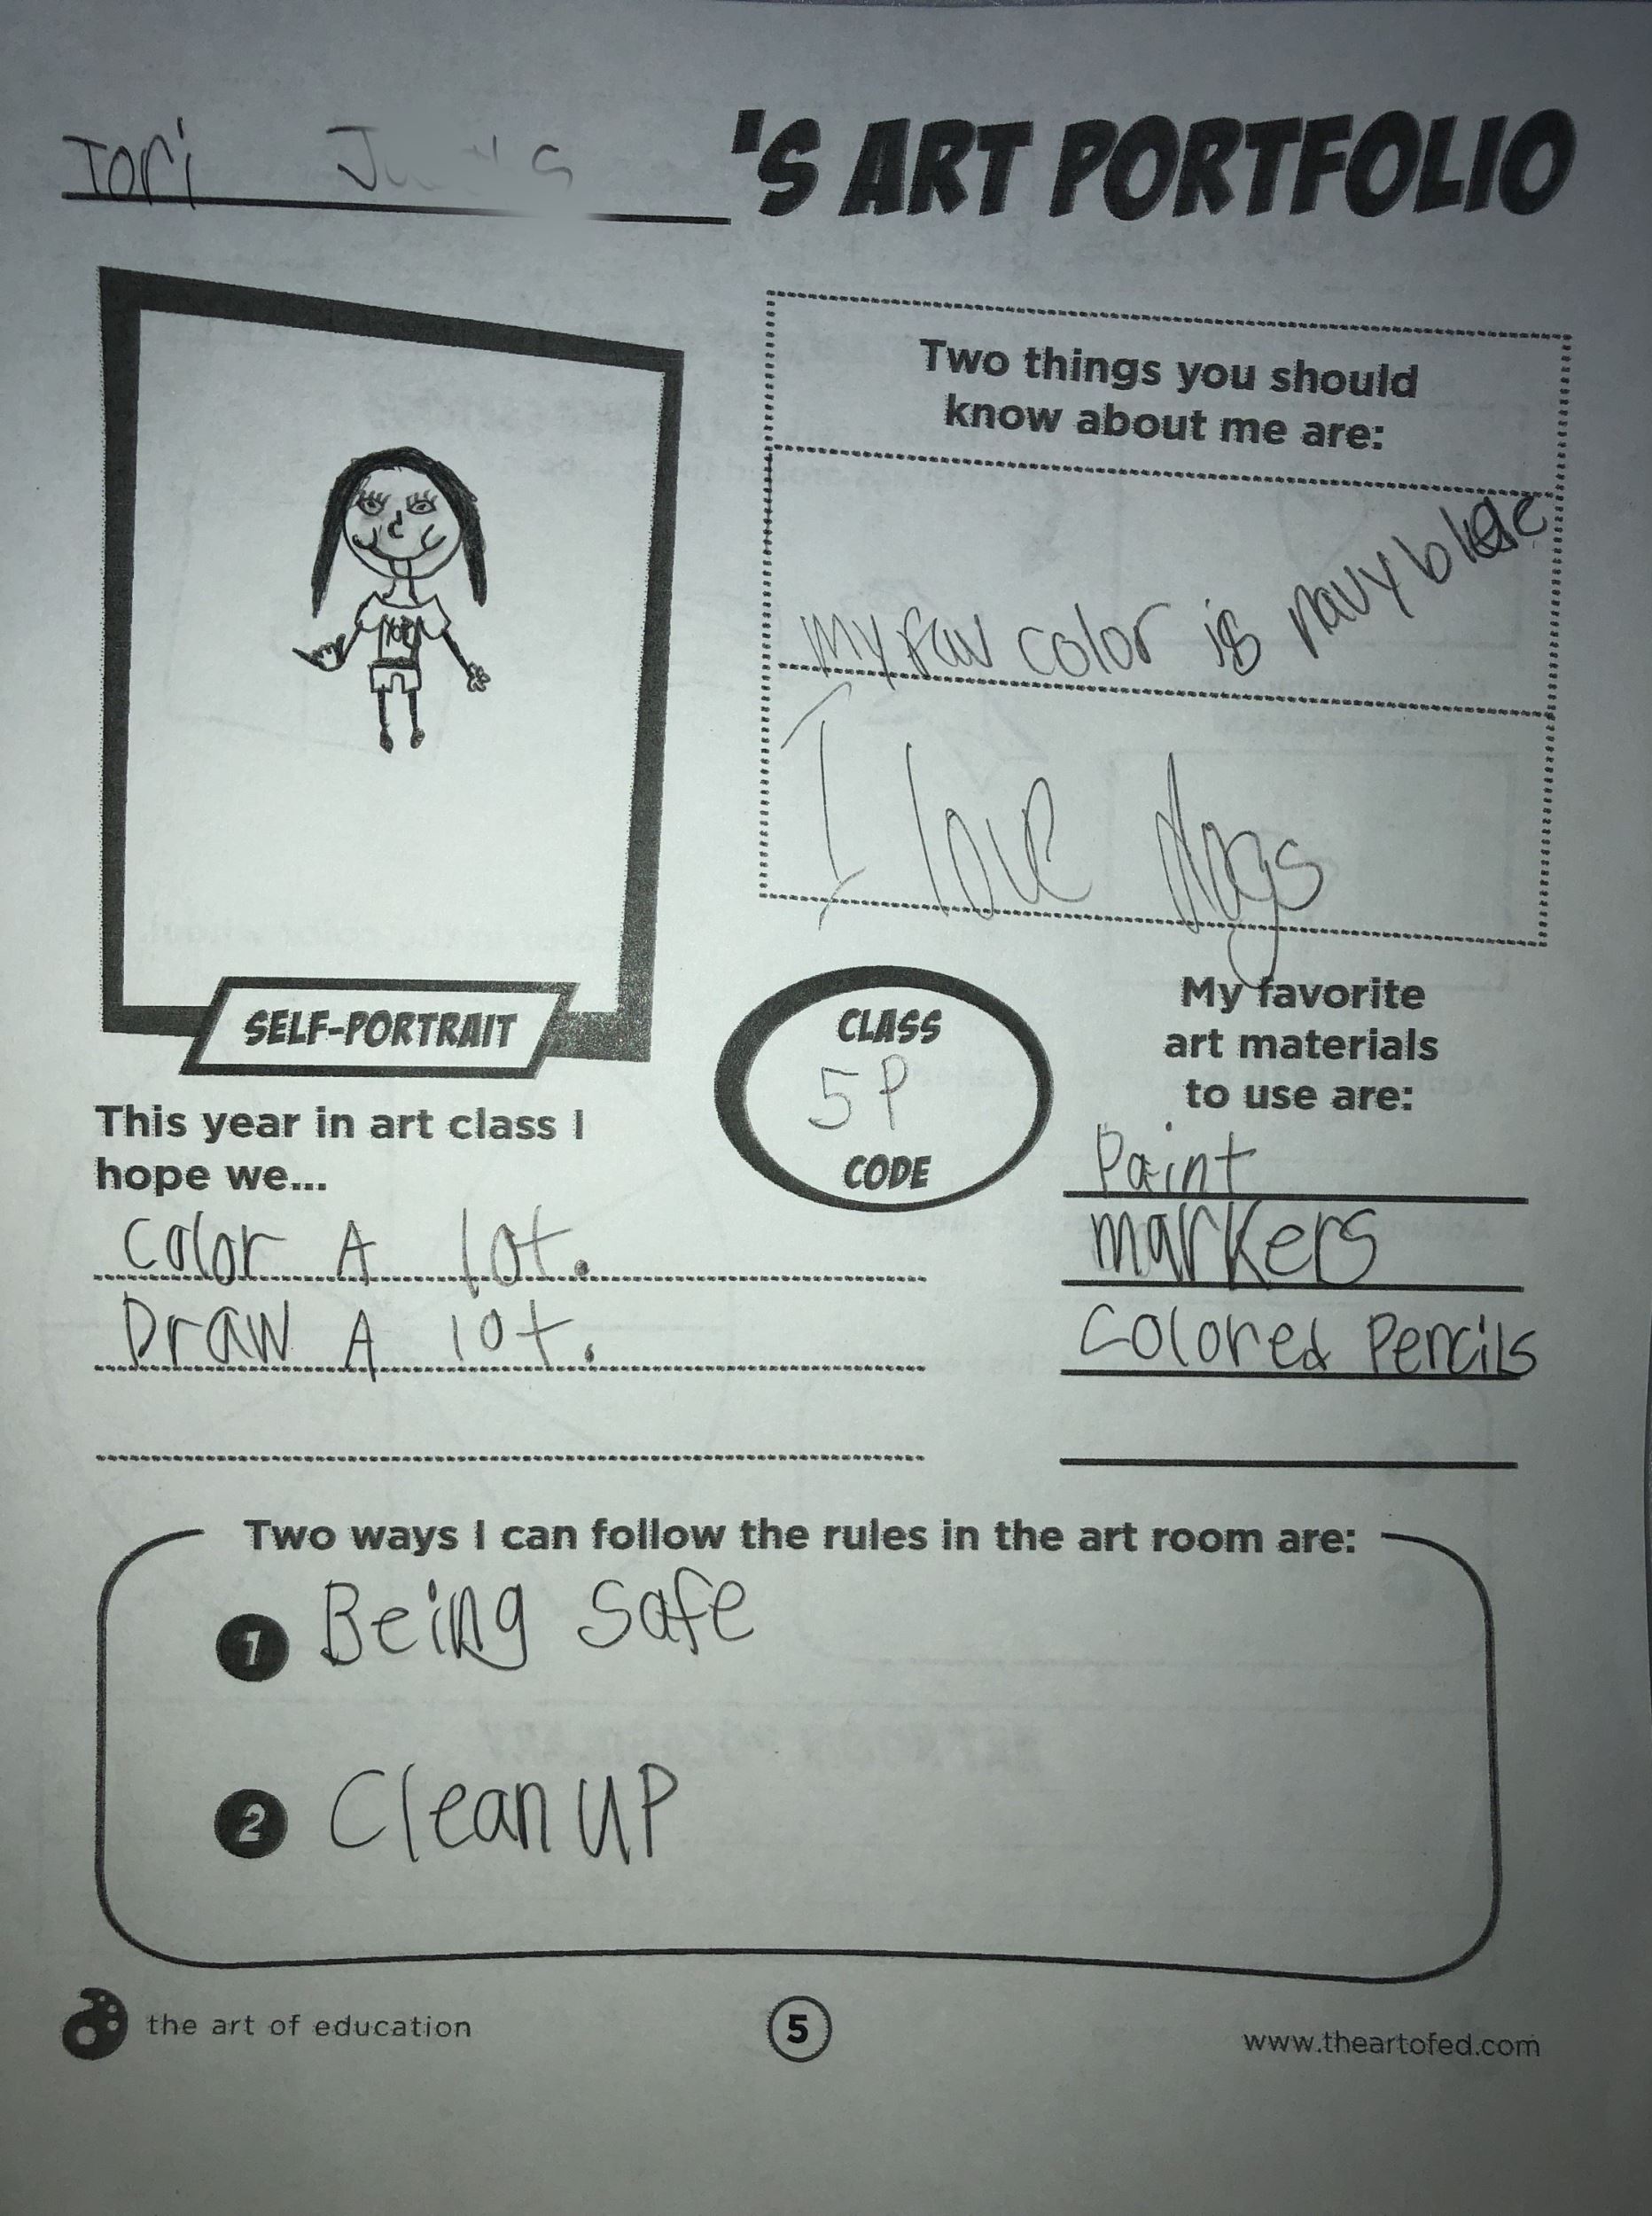 Tori 'S ART PORTFOLIO
Two things you should
know about me are:
my fav color is navy blue
I love dogs
SELF-PORTRAIT
CLASS
5P
CODE
My favorite
art materials
to use are:
Paint
markers
Colored Pencils
This year in art class I
hope we...
Color A lot.
Draw A lot.
Two ways I can follow the rules in the art room are:
1 Being safe
2 Clean UP
the art of education
5
www.theartofed.com